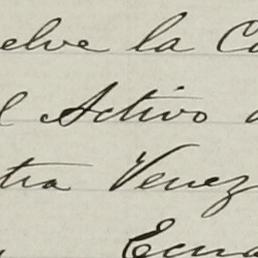 elve la Co
l Activo a
tra Venez
Ecua